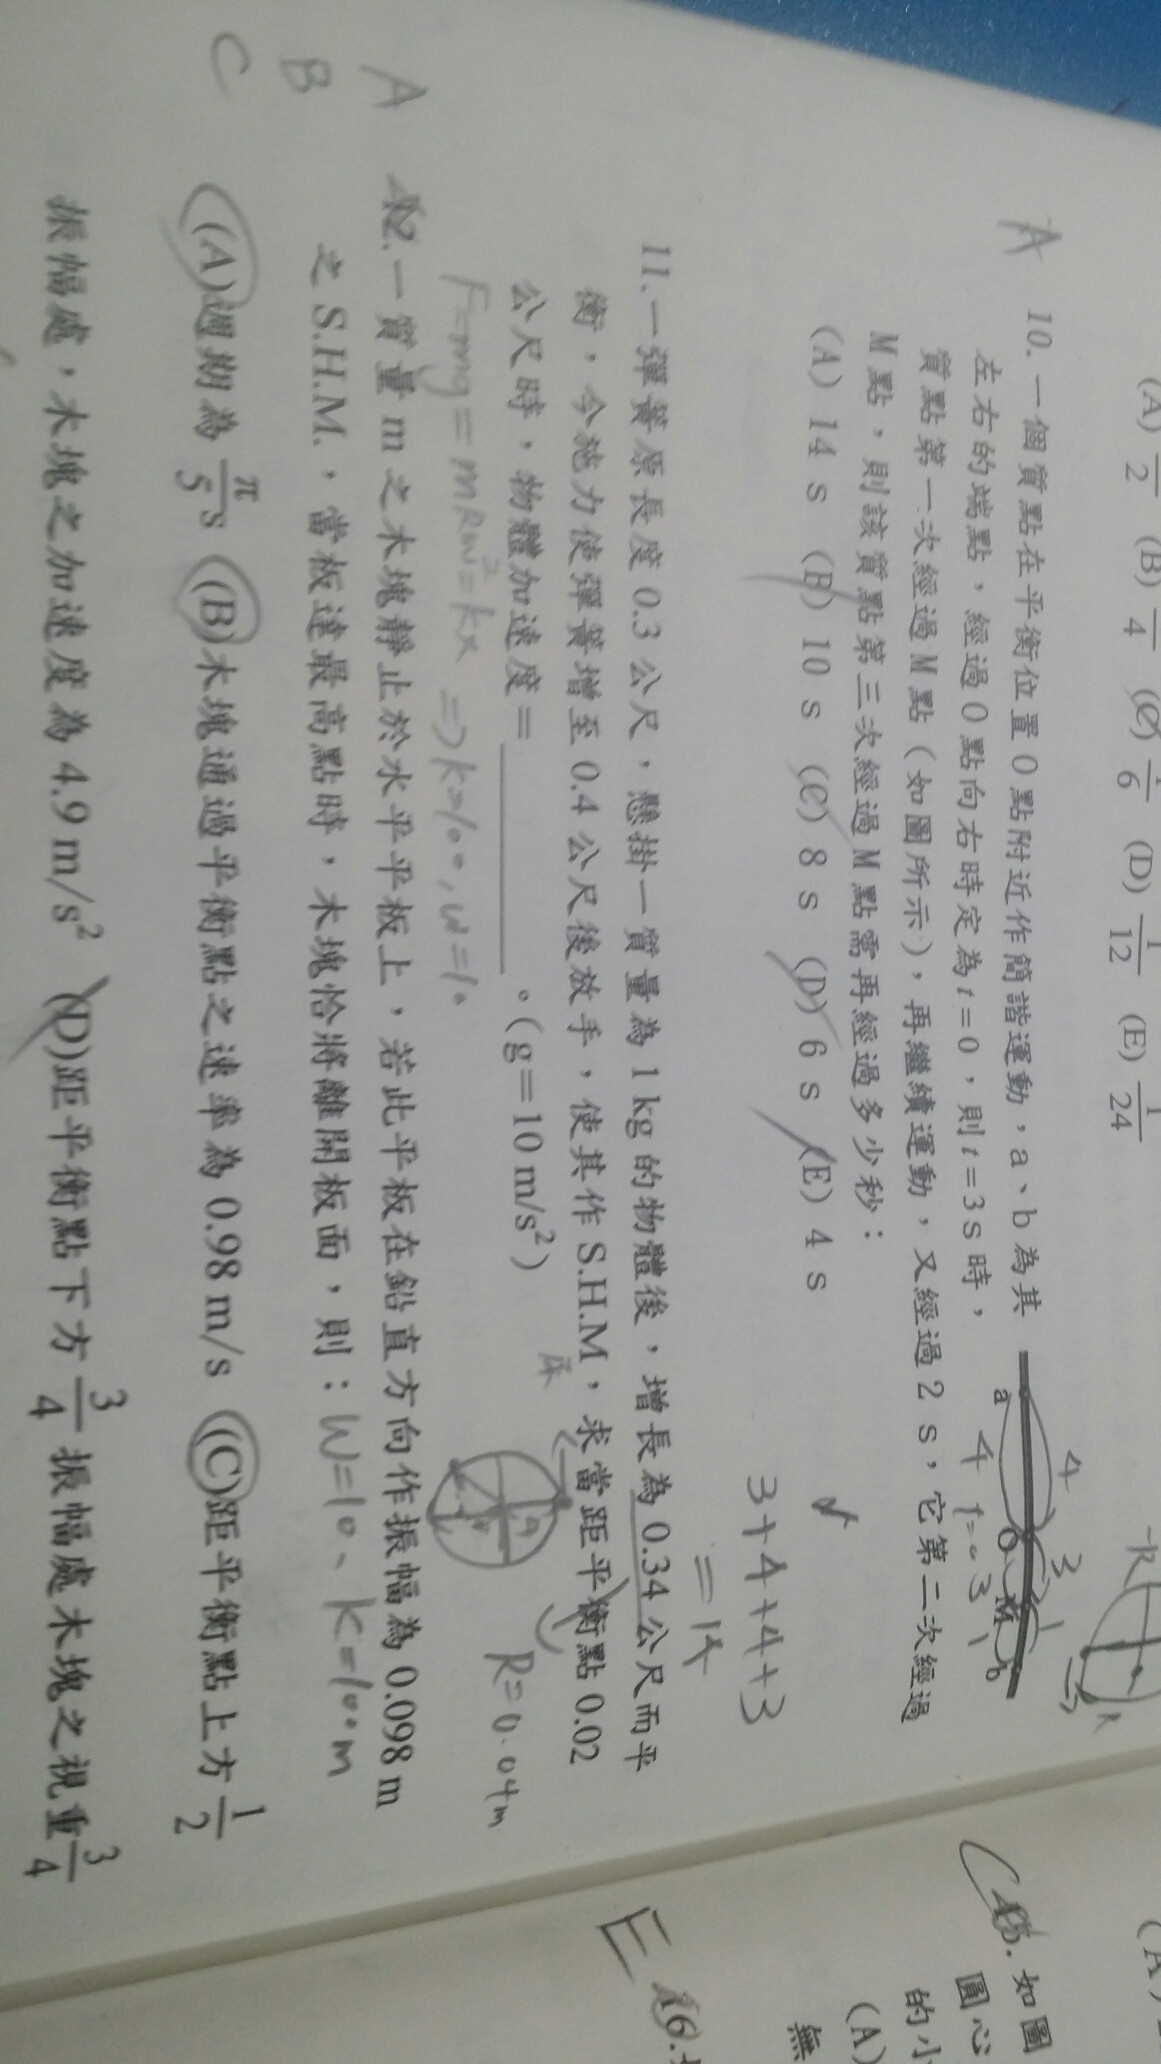 (A) 1/2 (B) 1/4 (C) 1/6 (D) 1/12 (E) 1/24
A
10. 一個質點在平衡位置O點附近作簡諧運動，a、b為其
左右的端點，經過O點向右時定為t=0，則t=3s時，
質點第一次經過M點（如圖所示），再繼續運動，又經過2 s，它第二次經過
M點，則該質點第三次經過M點需再經過多少秒：
(A) 14 s (B) 10 s (C) 8 s (D) 6 s (E) 4 s
a O M b
4 3 1
4 t=0 3 1
-R R
3+4+4+3
=14
11. 一彈簧原長度0.3公尺，懸掛一質量為1 kg的物體後，增長為0.34公尺而平
衡，今施力使彈簧增至0.4公尺後放手，使其作S.H.M，求當距平衡點0.02
公尺時，物體加速度=＿＿＿＿。(g=10 m/s²)
F=mg=mRω²=kx ⇒k=100, ω=10
R=0.04m
A
B
C
12. 一質量m之木塊靜止於水平平板上，若此平板在鉛直方向作振幅為0.098 m
之S.H.M.，當板達最高點時，木塊恰將離開板面，則：
W=10、K=100m
(A)週期為π/5 s (B)木塊通過平衡點之速率為0.98 m/s (C)距平衡點上方1/2
振幅處，木塊之加速度為4.9 m/s² (D)距平衡點下方3/4振幅處木塊之視重3/4
15. 如圖
圓心
的小
(A)
無
E
16.